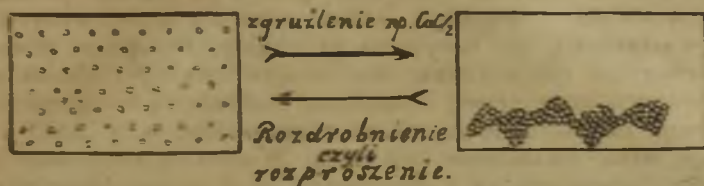 zgruźlenie np. CaCl2
Rozdrobnienie
czyli
rozproszenie.